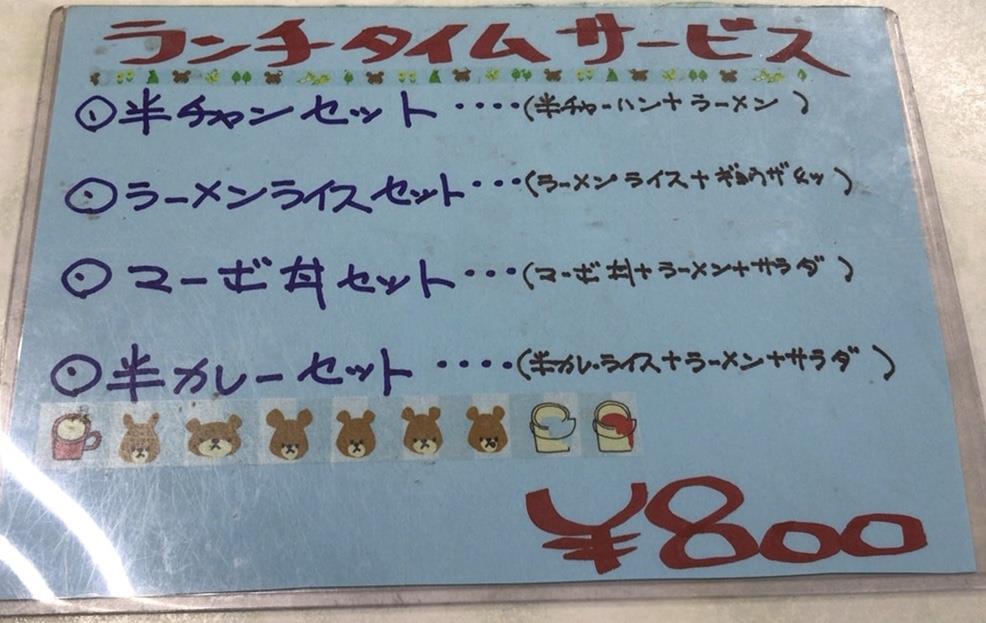 ランチタイムサービス
⊙半チャンセット ‥‥(半チャーハン+ラーメン)
⊙ラーメンライスセット・・・(ラーメンライス+ギョウザ)
⊙マーボ丼セット・・・(マーボ丼+ラーメン+サラダ)
⊙半カレーセット ‥‥(半カレーライス+ラーメン+サラダ)
¥800